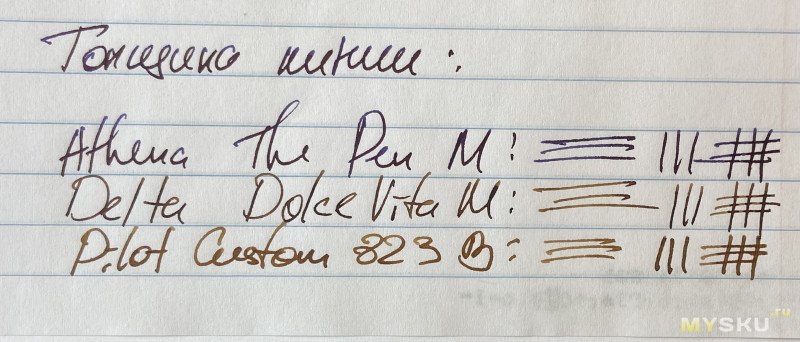 Толщина линии:
Athena The Pen M:
Delta Dolce Vita M:
Pilot Custom 823 B:
MYSKU.ru